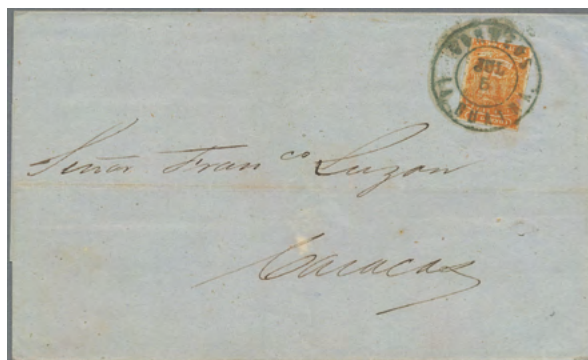 CORREOS
LA GUAIRA.
JUL
5
Señor Fran^co Luzon
Caracas